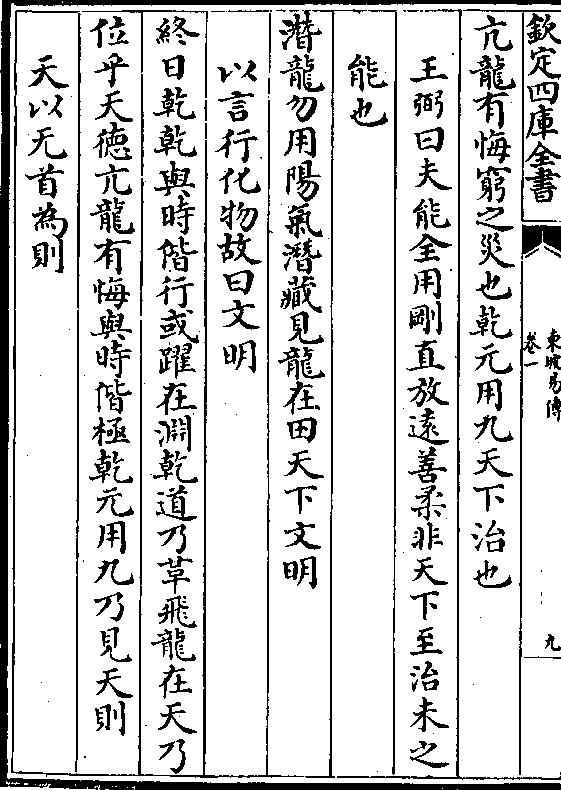 欽定四庫全書
東坡易傳
卷一
九
亢龍有悔窮之災也乾元用九天下治也
王弼曰夫能全用剛直放遠善柔非天下至治未之
能也
潛龍勿用陽氣潛藏見龍在田天下文明
以言行化物故曰文明
終日乾乾與時偕行或躍在淵乾道乃革飛龍在天乃
位乎天德亢龍有悔與時偕極乾元用九乃見天則
天以无首為則